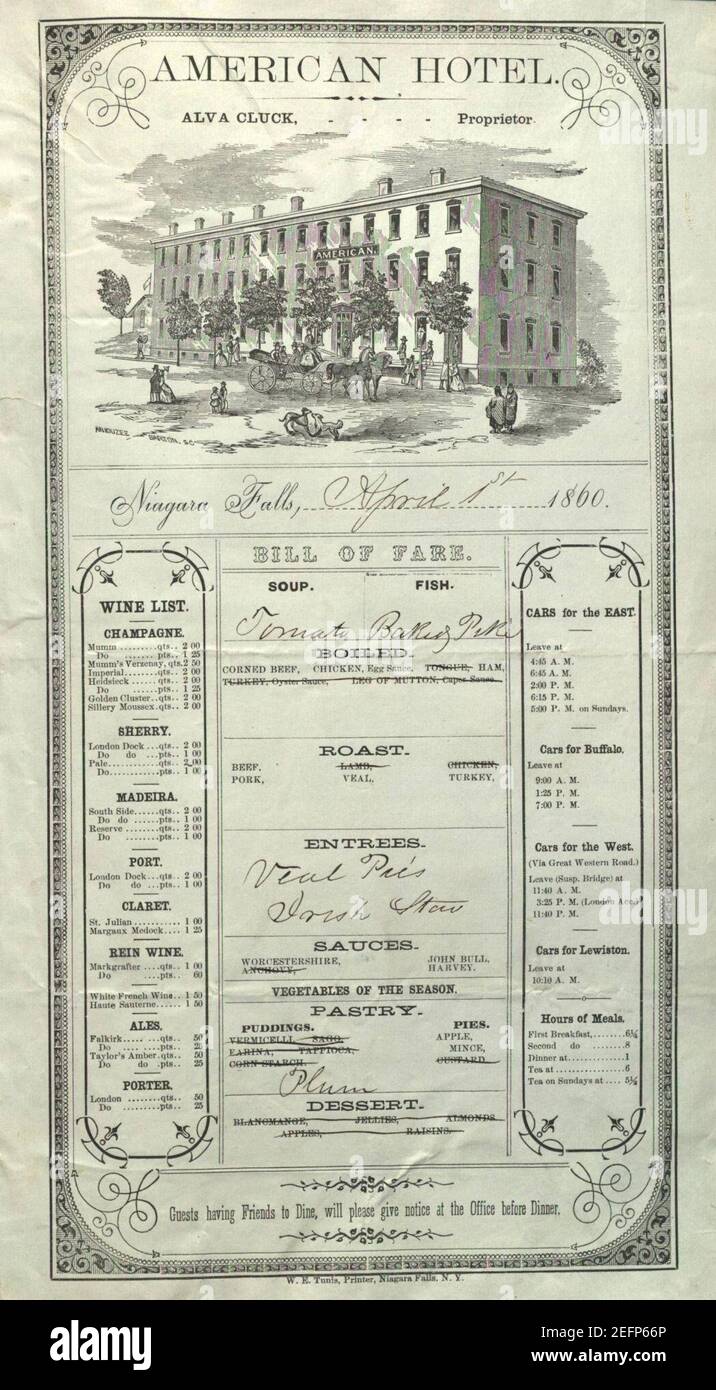 AMERICAN HOTEL.
ALVA CLUCK, - - - - Proprietor.
AMERICAN.
BARTON. SC
Niagara Falls, April 1st 1860.
WINE LIST.
CHAMPAGNE.
Mumm ........qts.. 2 00
Do .......pts.. 1 25
Mumm's Verzenay, qts. 2 50
Imperial........qts.. 2 00
Heidsieck .....qts.. 2 00
Do .....pts.. 1 25
Golden Cluster..qts.. 2 00
Sillery Moussex.qts.. 2 00
SHERRY.
London Dock ...qts.. 2 00
Do do ...pts.. 1 00
Pale............qts.. 2 00
Do............pts.. 1 00
MADEIRA.
South Side......qts.. 2 00
Do do ......pts.. 1 00
Reserve ........qts.. 2 00
Do ........pts.. 1 00
PORT.
London Dock...qts.. 2 00
Do do ...pts.. 1 00
CLARET.
St. Julian ........... 1 00
Margaux Medock.... 1 25
REIN WINE.
Markgrafter ....qts.. 1 00
Do .....pts.. 60
White French Wine.. 1 50
Haute Sauterne...... 1 50
ALES.
Falkirk..... ....qts.. 50
Do .........pts.. 25
Taylor's Amber.qts.. 50
Do do .pts.. 25
PORTER.
London ........qts.. 50
Do .........pts.. 25
BILL OF FARE.
SOUP. FISH.
Tomato Baked Pike
BOILED.
CORNED BEEF, CHICKEN, Egg Sauce, TONGUE, HAM,
TURKEY, Oyster Sauce, LEG OF MUTTON, Caper Sauce.
ROAST.
BEEF, LAMB, CHICKEN,
PORK, VEAL, TURKEY,
ENTREES.
Veal Pies
Irish Stew
SAUCES.
WORCESTERSHIRE, JOHN BULL,
ANCHOVY, HARVEY.
VEGETABLES OF THE SEASON.
PASTRY.
PUDDINGS. PIES.
VERMICELLI, SAGO, APPLE,
FARINA, TAPPIOCA, MINCE,
CORN STARCH. CUSTARD.
Plum
DESSERT.
BLANCMANGE, JELLIES, ALMONDS,
APPLES, RAISINS.
CARS for the EAST.
Leave at
4:45 A. M.
6:45 A. M.
2:00 P. M.
6:15 P. M.
5:00 P. M. on Sundays.
Cars for Buffalo.
Leave at
9:00 A. M.
1:25 P. M.
7:00 P. M.
Cars for the West.
(Via Great Western Road.)
Leave (Susp. Bridge) at
11:40 A. M.
3:25 P. M. (London Acc.)
11:40 P. M.
Cars for Lewiston.
Leave at
10:10 A. M.
Hours of Meals.
First Breakfast,.......6½
Second do .......8
Dinner at............1
Tea at ...............6
Tea on Sundays at .... 5½
Guests having Friends to Dine, will please give notice at the Office before Dinner.
W. E. Tunis, Printer, Niagara Falls, N. Y.
alamy
alamy
Image ID: 2EFP66P
www.alamy.com